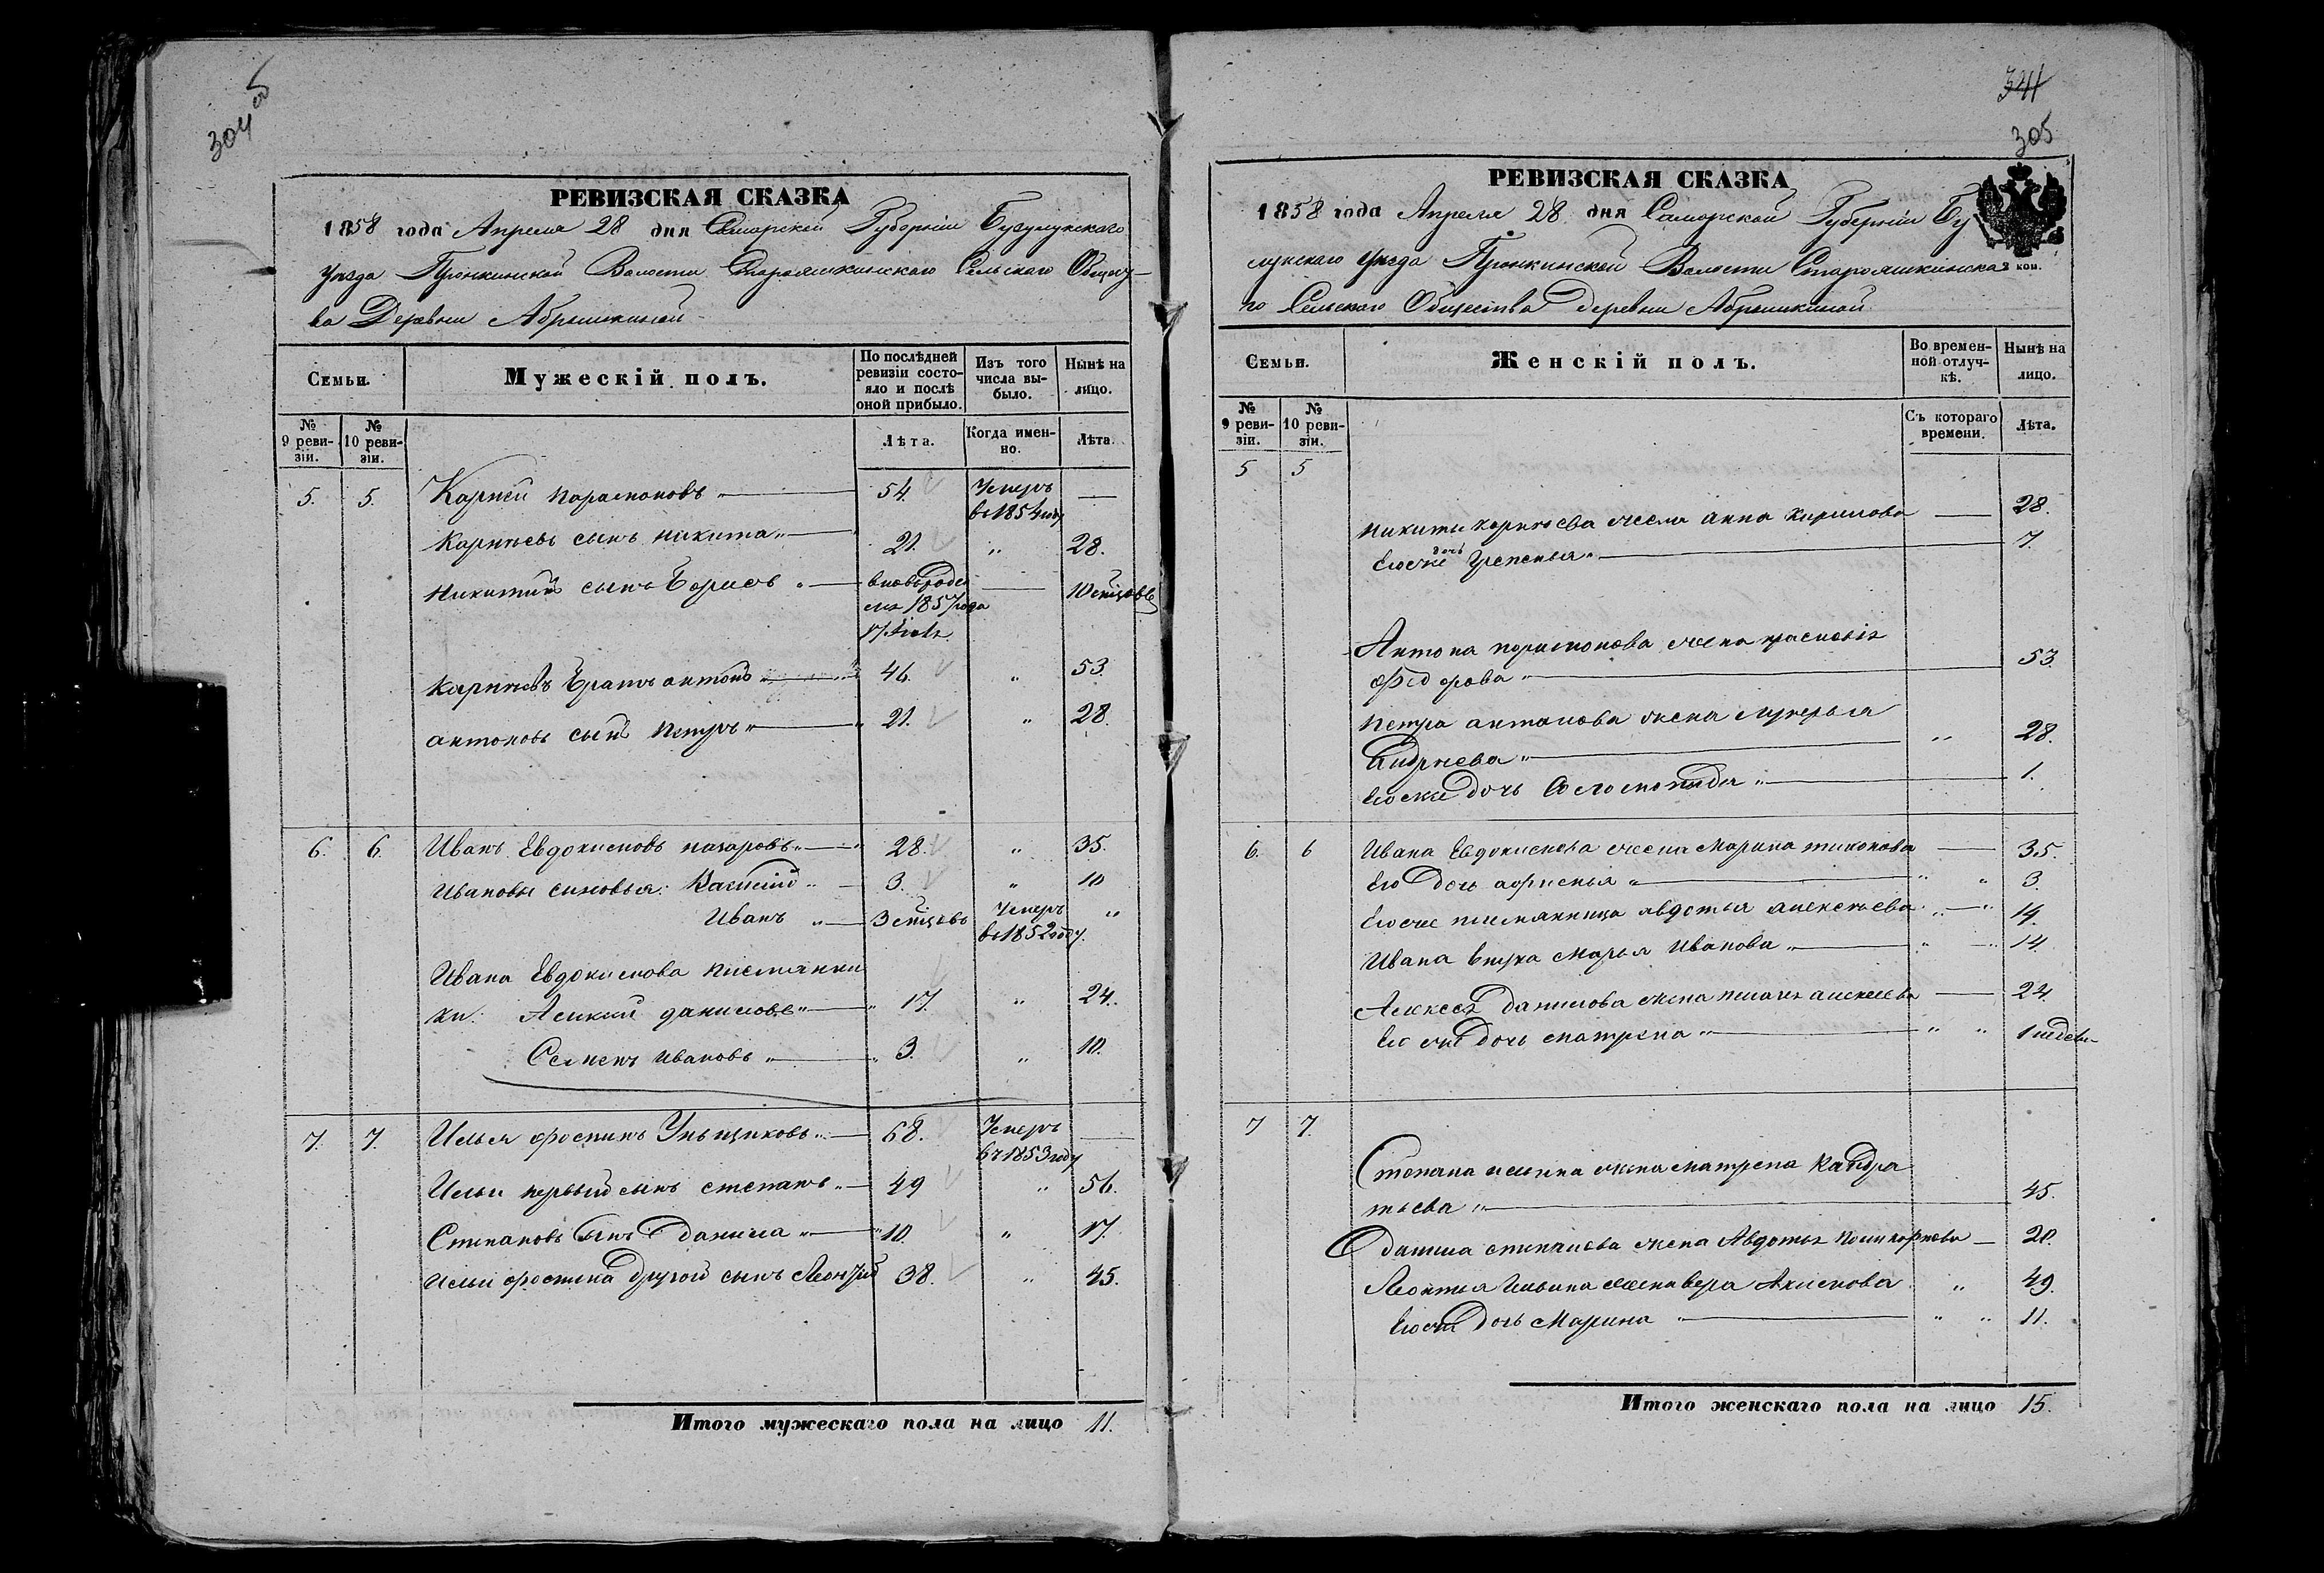 304 об
РЕВИЗСКАЯ СКАЗКА
1858 года Апреля 28 дня Самарской Губерніи Бузулукскаго
уезда Пронкинской Волости Староашкинскаго Сельскаго Общест-
ва Деревни Абрышкиной
Семьи.
Мужескій полъ.
По послѣдней ревизіи состо-
яло и послѣ оной прибыло.
Изъ того числа вы-
было.
Нынѣ на лицо.
№ 9 реви-
зіи.
№ 10 реви-
зіи.
Лѣта.
Когда имен-
но.
Лѣта.
5. 5. Карней парамоновъ 54. Умеръ —
в 1854 году
Карнѣевъ сынъ никита 21. " 28.
никитинъ сынъ Борисъ вновьрод. — 10 мѣсяцовъ
1857 года
Карнѣевъ братъ антонъ 46. " 53.
антоновъ сынъ петръ 21. " 28.
6. 6. Иванъ Евдокимовъ назаровъ 28. " 35.
Ивановы сыновья: 3. " 10
Иванъ 3 мѣсяцовъ Умеръ "
в 1852 году.
Ивана Евдокимова племянни
ки: Алексей даниловъ 17. " 24.
Семенъ ивановъ 3. " 10.
7. 7. Илья фоминъ 68. Умеръ —
въ 1853 году
Ильи первый сынъ степанъ 49 " 56.
Степановъ сынъ данила 10. " 17.
Ильи фомина другой сынъ Леонтий 38. " 45.
Итого мужескаго пола на лицо 11.
344
305
РЕВИЗСКАЯ СКАЗКА
1858 года Апреля 28 дня Самарской Губерніи Бу
лукскаго уезда Пронкинской Волости Староашкинска
3 коп.
го Сельскаго Общества деревни Абрышкиной
Семьи.
Женскій полъ.
Во времен-
ной отлуч-
кѣ.
Нынѣ на лицо.
№ 9 реви-
зіи.
№ 10 реви-
зіи.
Съ котораго времени.
Лѣта.
5 5
никиты карнѣева жена анна кирилова — 28.
Егоже дочь Устинья 7.
Антона парамонова жена прасковья
федорова 53
петра антонова жена лукерья
андреева " 28.
Егоже дочь Соломонида 1.
6. 6 Ивана Евдокимова жена Марина тихонова — 35.
Его дочь афимья " " 3.
Егоже племянница авдотья алексѣева " " 14.
Ивана внука Марья иванова " " 14.
Алексея данилова жена пелагея алексеева — 24.
Его же дочь матрена " " 1 недели
7 7.
Степана ильина жена матрена кандра
тьева 45.
данила степанова жена Авдотья поликарпова — 20.
Леонтья Ильина жена вера Акимова " 49.
Егоже дочь Марина " " 11.
Итого женскаго пола на лицо 15.